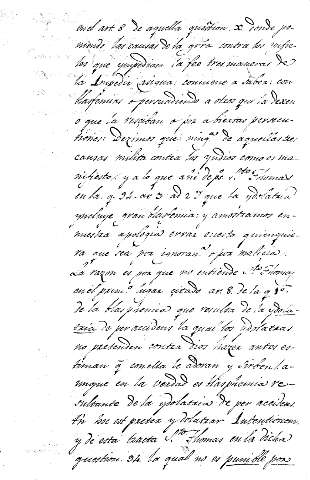 en el art. 8 de aquella question. x donde po
niendo las causas de la gera contra los infie
les que impiden la fee tres maneras de
la impedir asigna, conviene a saber: con
blasfemias o persuadiendo a otros que la dexen
o que la resciban o por abiertas persecu
tiones: Dezimos que ning.ª de aquellas tres
causas milita contra los yndios como es ma
nifiesto; y a lo que añade s.to Thomas
en la q. 94. ar. 3 ad 2.m que la ydolatria
yncluye gran blasfemia: y amostramos en
nuestra apologia errar en esto quienquie
ra que sea por ignoran.ª o por malicia.
La razon es por que no entiende S.to Thomas
en el prim.º lugar citado art. 8. de la q. 10.ª
de la blasphemia que resulta de la ydola
tria de per accidens la qual los ydolatras
no pretenden contra Dios hazer antes es
timan q. con ella le adoran y sirben: a
unque en la verdad es blasphemia re
sultante de la ydolatria de per accidens
y de esta tracta S.to Thomas en la dicha
question. 94. la qual no es punible por